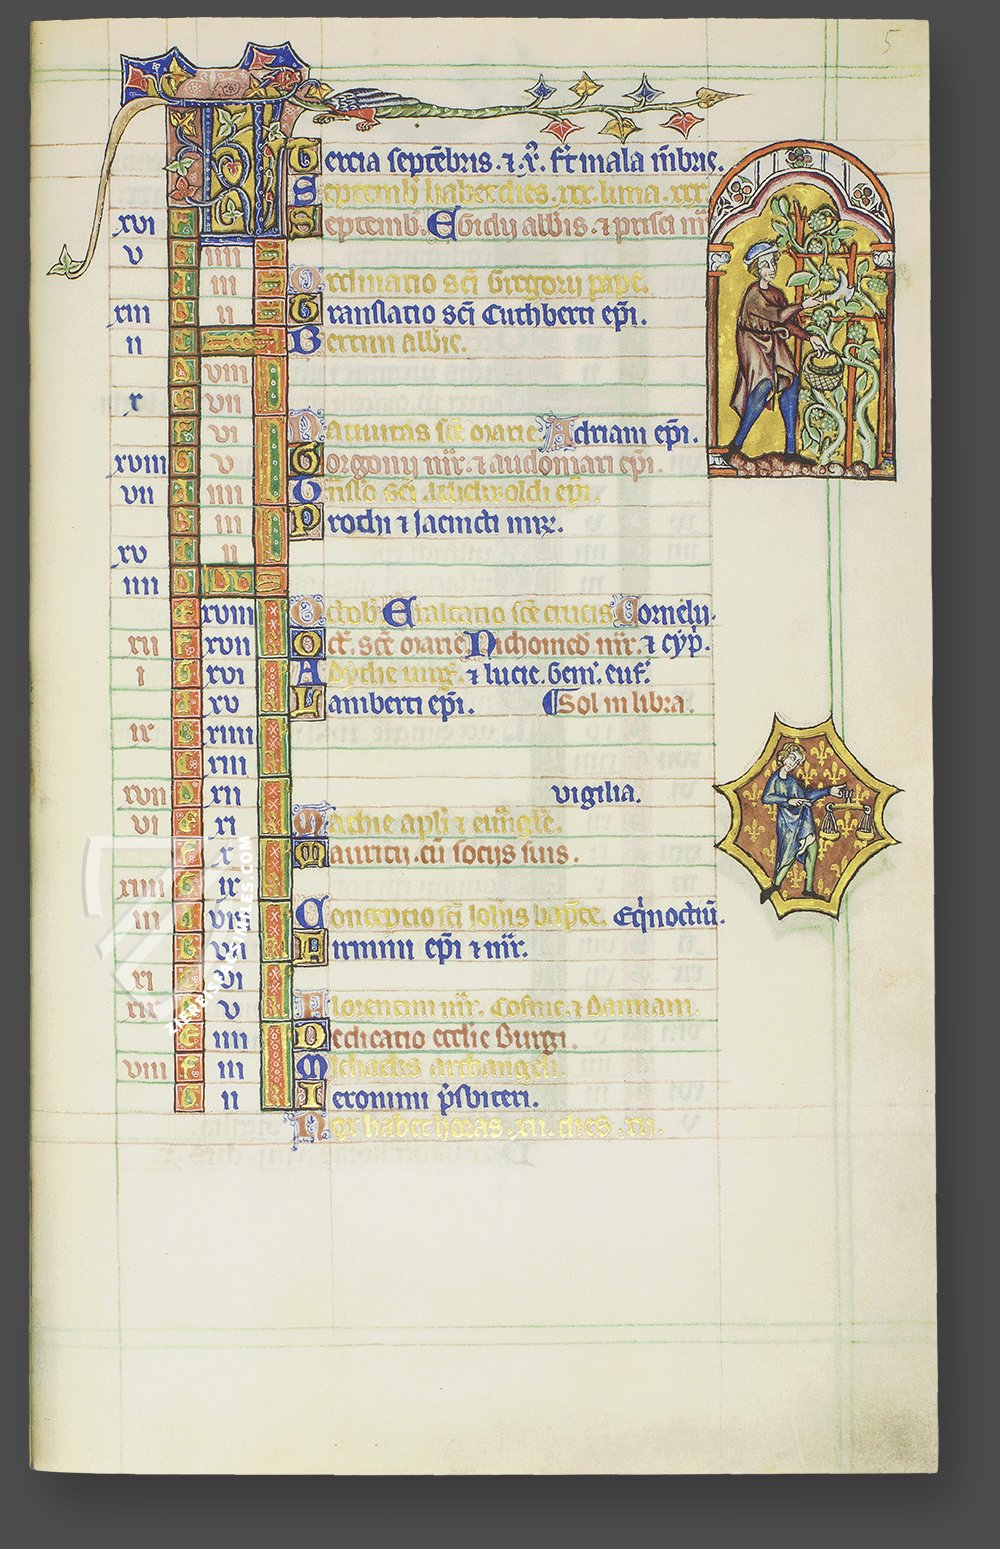 5
KL Tercia septēbris. ⁊ x̊. fert mala mēbris.
Septemb habet dies .xxx. luna .xxx.
xvi A Septemb. Egidii abbis. ⁊ prisci mr̄
v B iiii
C iii Ordinatio sc̄i Gregorii pape.
xiii D ii Translatio sc̄i Cuthberti ep̄i.
ii E Bertini abb̄is.
F viii
x G vii
A vi Natiuitas sc̄e marie Adriani ep̄i.
xviii v Gorgonii mr̄. ⁊ audomari ep̄i.
vii A iiii Tr̄aslo sc̄i ep̄i.
B iii Prothi ⁊ Iacincti mr̄.
xv C ii
iiii D Idus
E xviii Octob Exaltatio sc̄e crucis Cornelii.
xii F xvii Oct̄. sc̄e marie Nichomed̄ mr̄. ⁊ cyp̄.
i G xvi Adythe uirḡ. ⁊ lucie. Gem̄. euf̄.
A xv Lamberti ep̄i. Sol in libra.
ix B xiiii
C xiii
xvii D xii vigilia.
vi E xi Mathie apl̄i ⁊ eūngle.
F x Mauricij. cū socijs suis.
xiiii G ix
iii A viii Conceptio sc̄i Ioh̄is bap̄te. Eq̄noctiū.
B vii Firmini ep̄i ⁊ mr̄.
xi C vi
xix D v Florentini mr̄. Cosme. ⁊ Damiani.
E iiii Dedicatio eccl̄ie Burgi.
viii F iii Michaelis archangeli.
G ii Ieronimi p̄sbiteri.
Nox habet horas .xii. dies .xii.
ZIEREIS FACSIMILES.COM